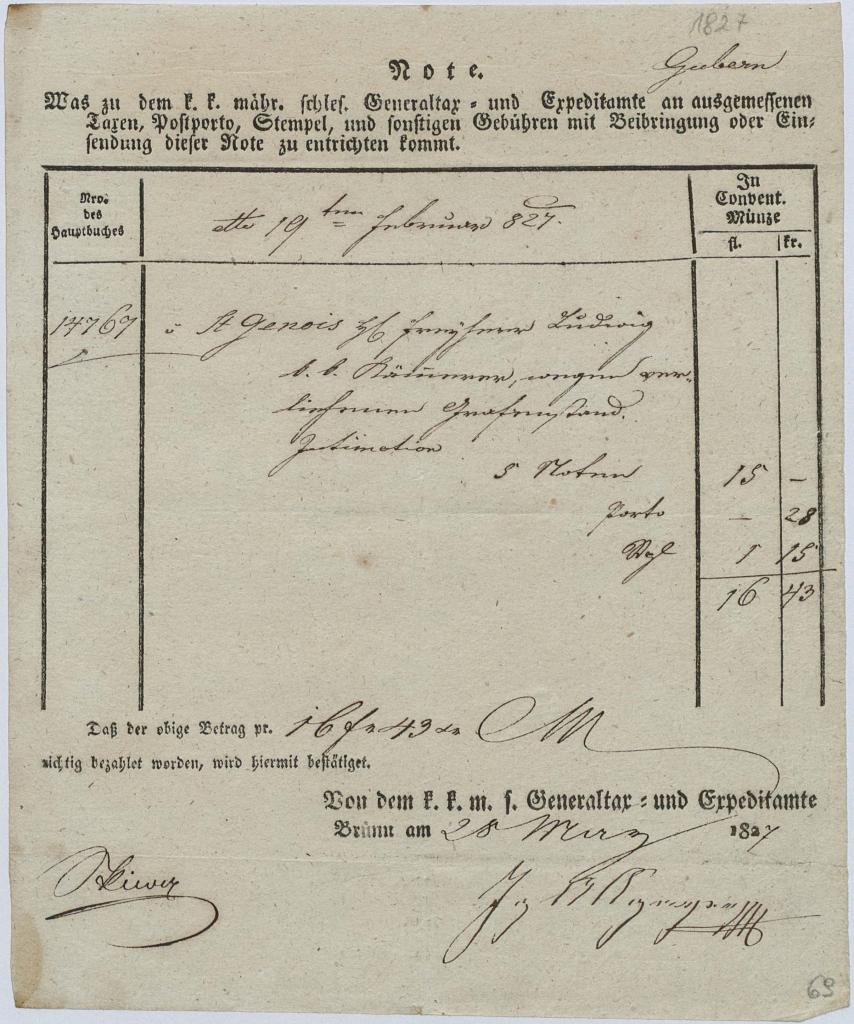 1827
Gubern
Note.
Was zu dem k. k. mähr. schles. Generaltax = und Expeditamte an ausgemessenen
Taxen, Postporto, Stempel, und sonstigen Gebühren mit Beibringung oder Ein=
sendung dieser Note zu entrichten kommt.
Nro.
des
Hauptbuches
dto 19ten Februar 827.
In
Convent.
Münze
fl. kr.
14767 St Genois Freyherr Ludwig
k. k. Kämmerer, wegen ver=
liehenen Grafenstand.
Intimation
5 Noten 15 –
Porto – 28
1 15
16 43
Daß der obige Betrag pr. 16 f 43 xr
richtig bezahlet worden, wird hiermit bestätiget.
Von dem k. k. m. s. Generaltax = und Expeditamte
Brünn am 28 May 1827
69